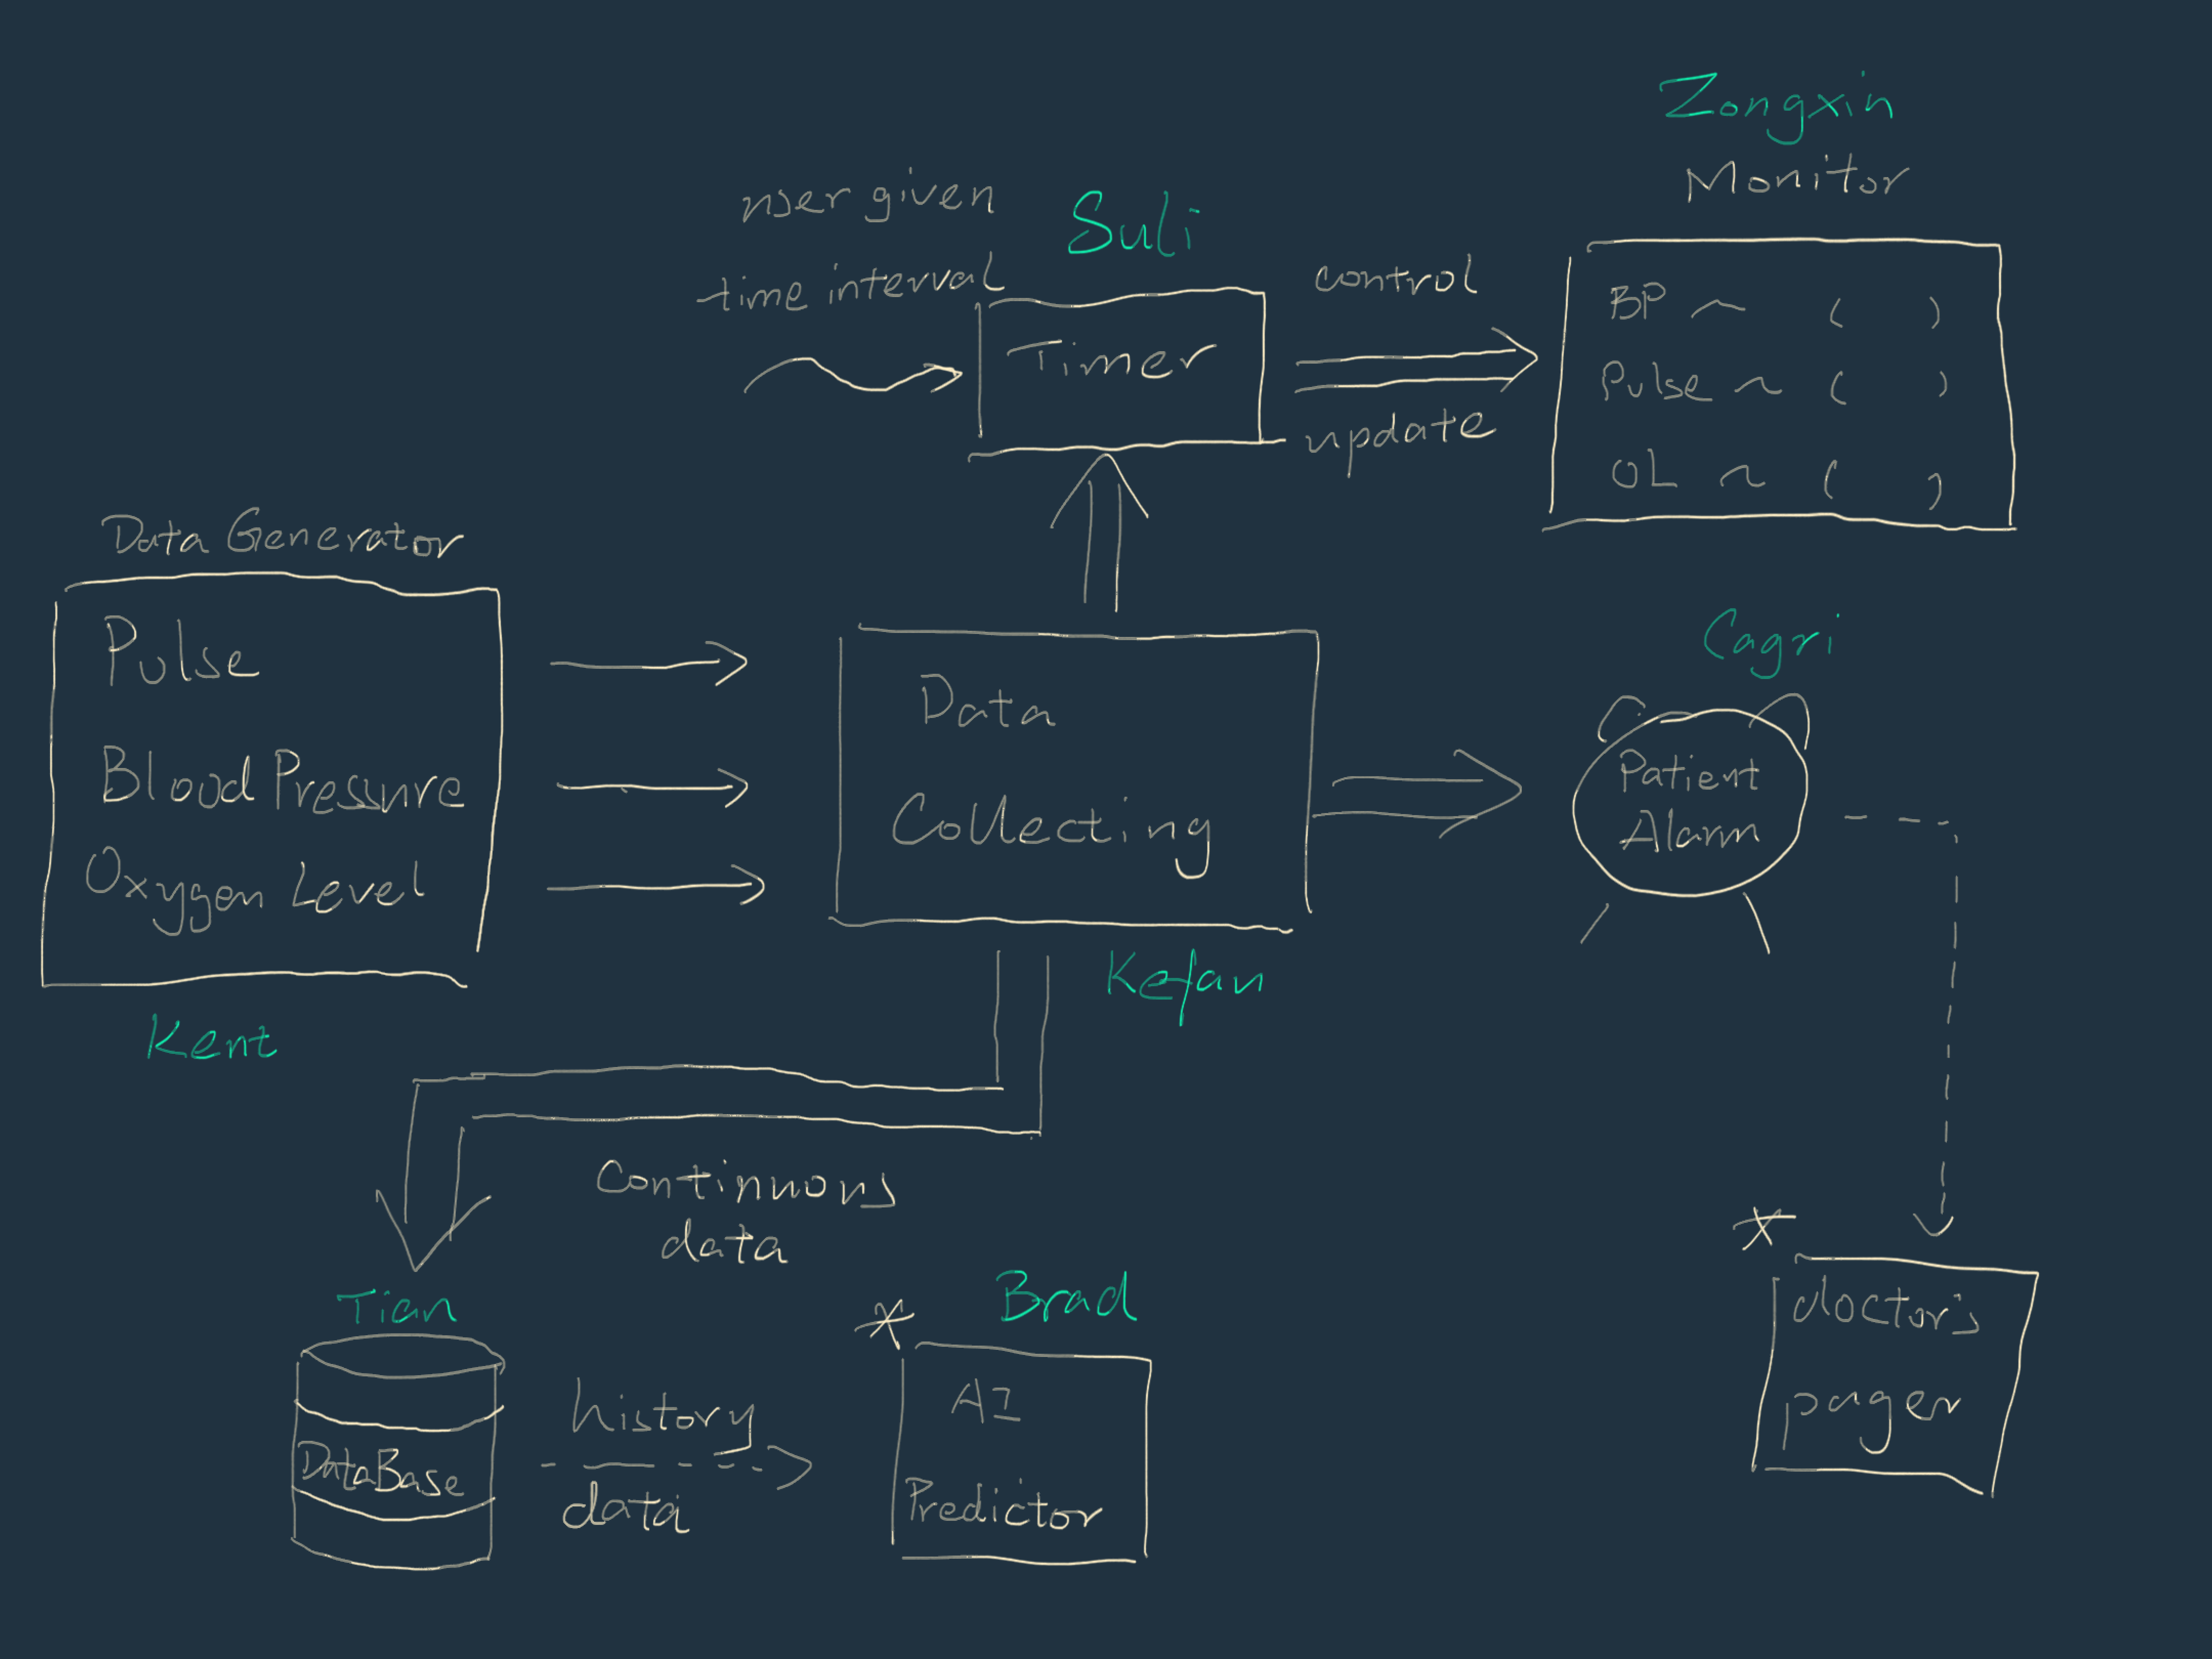 Zongxin
Monitor
BP ~ ( )
Pulse ~ ( )
OL ~ ( )
user given
time interval
Suli
Timer
control
update
Data Generator
Pulse
Blood Pressure
Oxygen Level
Kent
Data
Collecting
Kefan
Cagri
Patient
Alarm
Continuous
data
Tian
DataBase
history
data
*
Brad
AI
Predictor
*
doctor's
pager